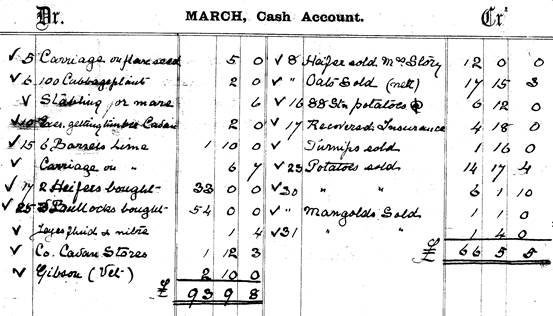 Dr. MARCH, Cash Account. Cr
✓ 5 Carriage on flax seed 5 0
✓ 6 100 Cabbage plants 2 0
✓ Stabling for mare 6
✓ 10 Exes. getting timber Cavan 2 0
✓ 15 6 Barrels Lime 1 10 0
✓ Carriage on " 6 7
✓ 17 2 Heifers bought 33 0 0
✓ 25 Bullocks bought 54 0 0
✓ fluid & nitre 1 4
✓ Co. Cavan Stores 1 12 3
✓ Gibson (Vet) 2 10 0
£ 93 9 8
✓ 8 Heifer sold Mrs Story 12 0 0
✓ " Oats Sold (nett) 17 15 3
✓ 16 88 Stn potatoes 6 12 0
✓ 17 Recovered Insurance 4 18 0
✓ Turnips sold 1 16 0
✓ 23 Potatoes sold 14 17 4
✓ 30 " " 6 1 10
✓ " Mangolds Sold 1 1 0
✓ 31 " " 1 4 0
£ 66 5 5